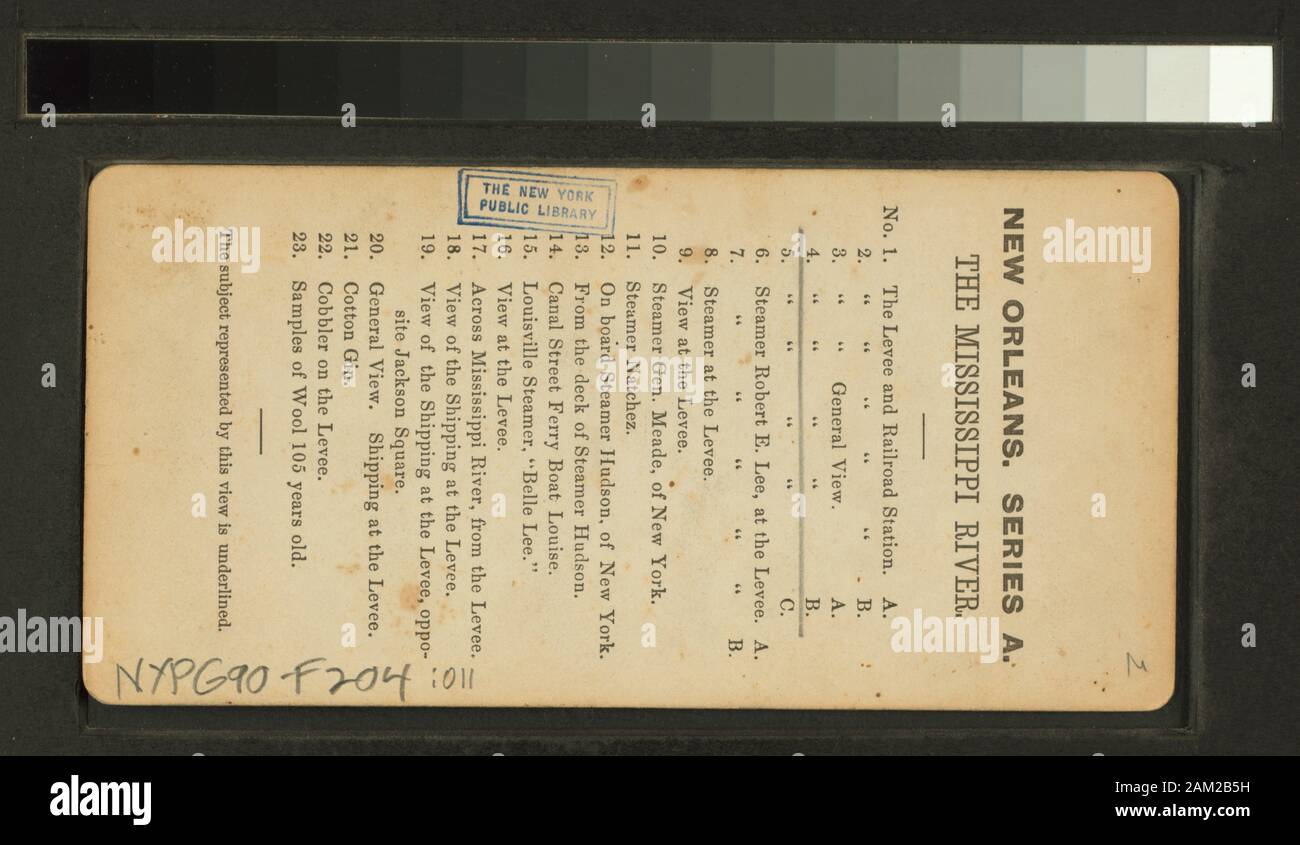 NEW ORLEANS. SERIES A.
THE MISSISSIPPI RIVER.
No. 1. The Levee and Railroad Station. A.
2. “ “ “ “ “ B.
3. “ “ General View. A.
4. “ “ “ “ B.
5. “ “ “ “ C.
6. Steamer Robert E. Lee, at the Levee. A.
7. “ “ “ “ “ B.
8. Steamer at the Levee.
9. View at the Levee.
10. Steamer Gen. Meade, of New York.
11. Steamer Natchez.
12. On board Steamer Hudson, of New York.
13. From the deck of Steamer Hudson.
14. Canal Street Ferry Boat Louise.
15. Louisville Steamer, “Belle Lee.”
16. View at the Levee.
17. Across Mississippi River, from the Levee.
18. View of the Shipping at the Levee.
19. View of the Shipping at the Levee, oppo-
site Jackson Square.
20. General View. Shipping at the Levee.
21. Cotton Gin.
22. Cobbler on the Levee.
23. Samples of Wool 105 years old.
The subject represented by this view is underlined.
THE NEW YORK
PUBLIC LIBRARY
NYPG90-F204 :011
alamy
a
a
a
a
a
a
a
a
alamy
Image ID: 2AM2B5H
www.alamy.com